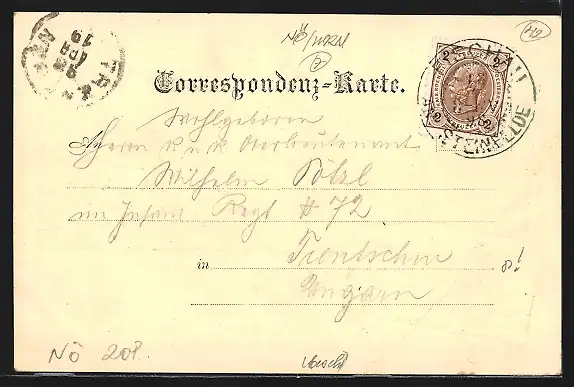 NÖ/WRN
Correspondenz-Karte.
Wohlgeboren
Herrn k u k Oberleutenant
Wilhelm Pölzl
im Infant Regt # 72
in Trentschin
Ungarn
NÖ 208.
STEINFELDE